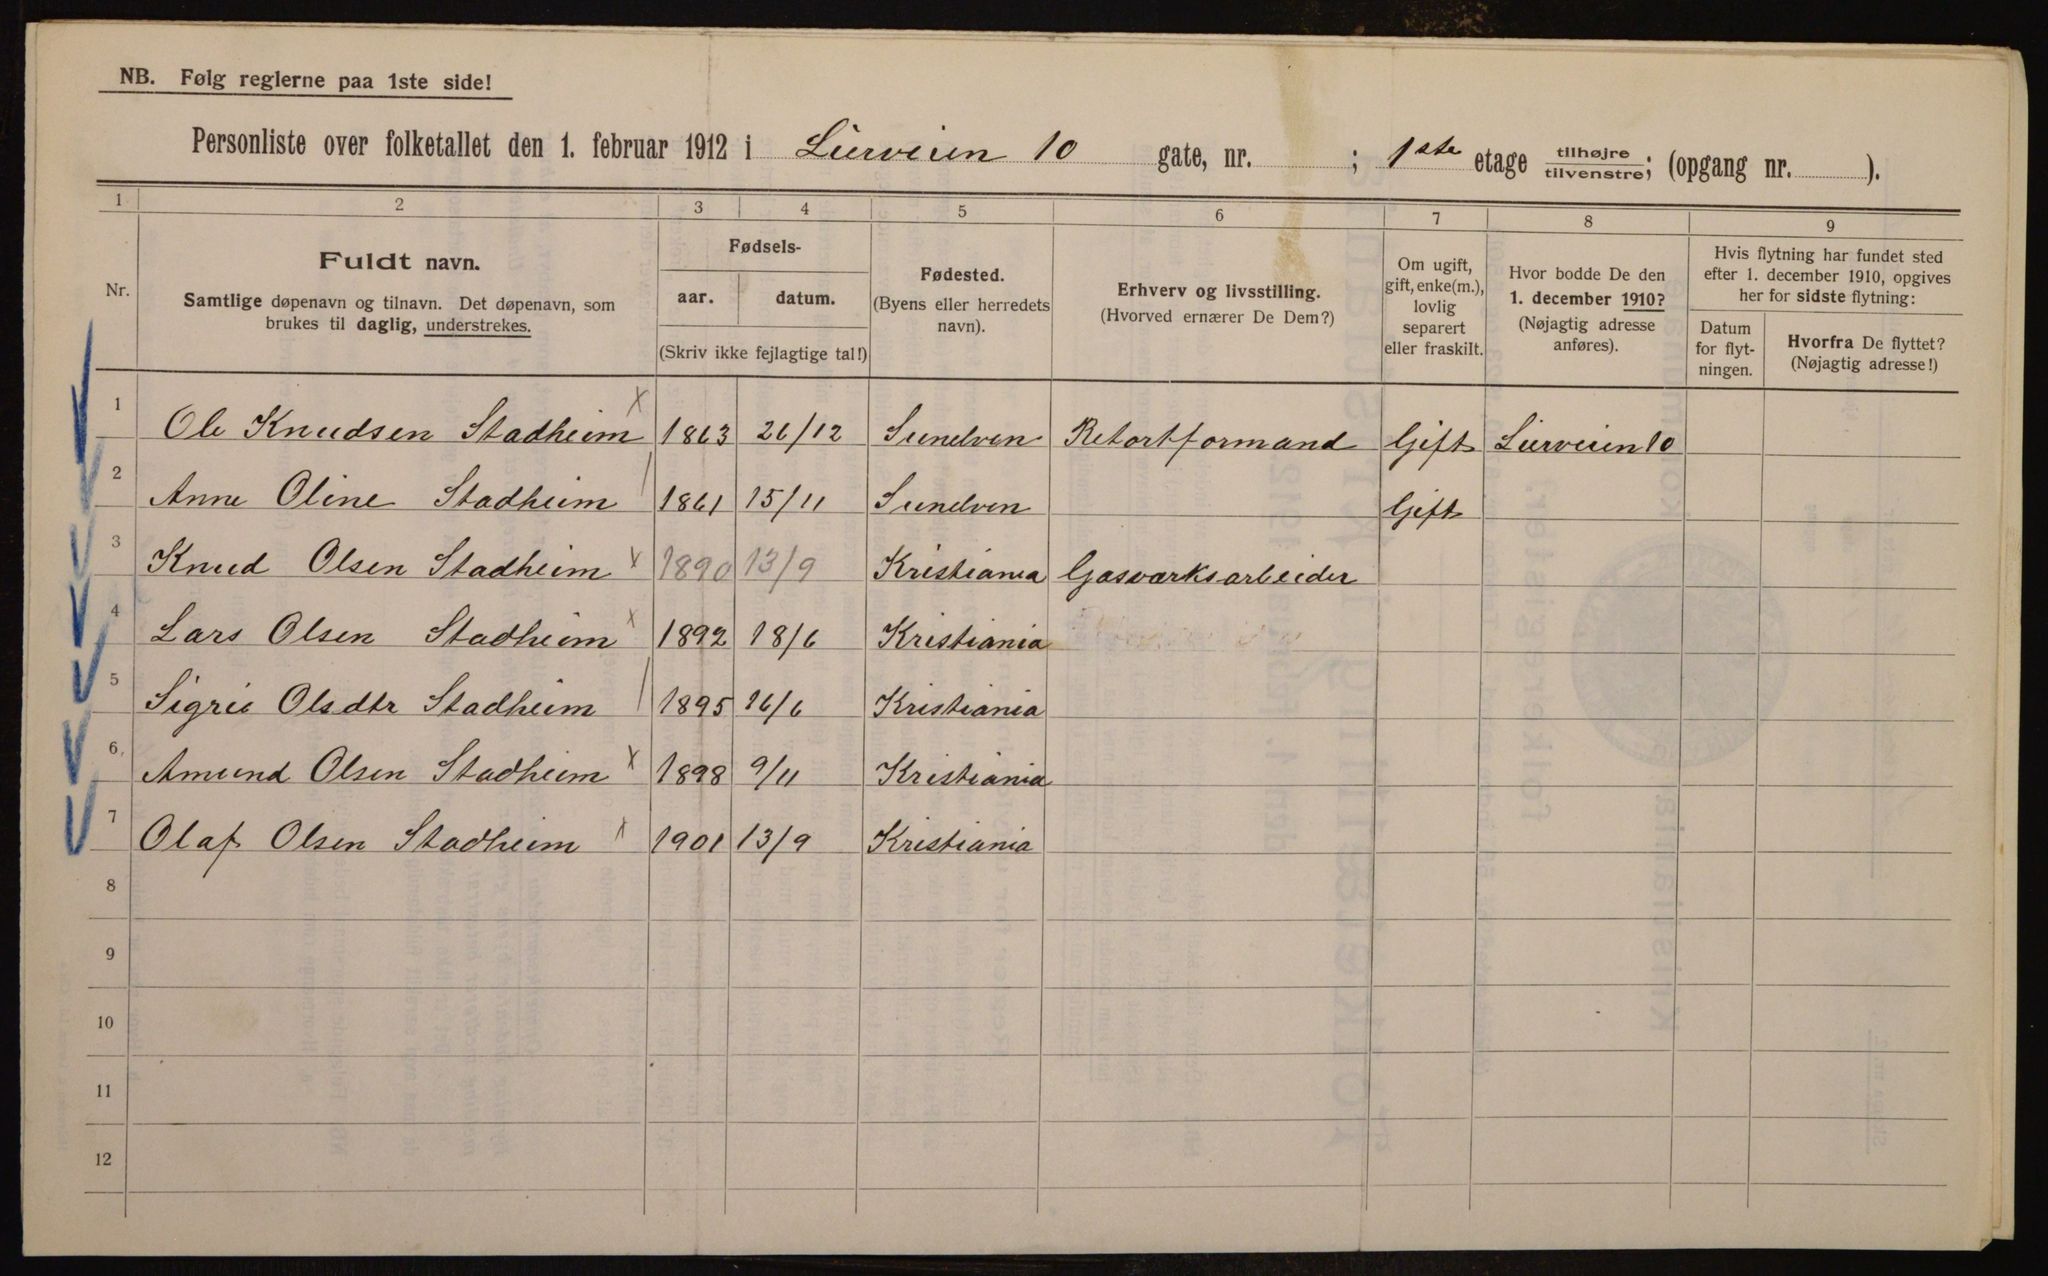 NB. Følg reglerne paa 1ste side!
Personliste over folketallet den 1. februar 1912 i Lierveien 10 gate, nr. ; 1ste etage tilhøjre tilvenstre; (opgang nr. ).
1 2 3 4 5 6 7 8 9
Nr.
Fuldt navn.
Samtlige døpenavn og tilnavn. Det døpenavn, som
brukes til daglig, understrekes.
Fødsels-
aar. datum.
(Skriv ikke fejlagtige tal!)
Fødested.
(Byens eller herredets
navn).
Erhverv og livsstilling.
(Hvorved ernærer De Dem?)
Om ugift,
gift, enke(m.),
lovlig
separert
eller fraskilt.
Hvor bodde De den
1. december 1910?
(Nøjagtig adresse
anføres).
Hvis flytning har fundet sted
efter 1. december 1910, opgives
her for sidste flytning:
Datum
for flyt-
ningen.
Hvorfra De flyttet?
(Nøjagtig adresse!)
1 Ole Knudsen Stadheim x 1863 26/12 Sunelven Retortformand Gift Lierveien 10
2 Anne Oline Stadheim / 1861 15/11 Sunelven Gift
3 Knud Olsen Stadheim x 1890 13/9 Kristiania Gasværksarbeider
4 Lars Olsen Stadheim x 1892 18/6 Kristiania
5 Sigrid Olsdtr Stadheim / 1895 16/6 Kristiania
6 Amund Olsen Stadheim x 1898 9/11 Kristiania
7 Olaf Olsen Stadheim x 1901 13/9 Kristiania
8
9
10
11
12